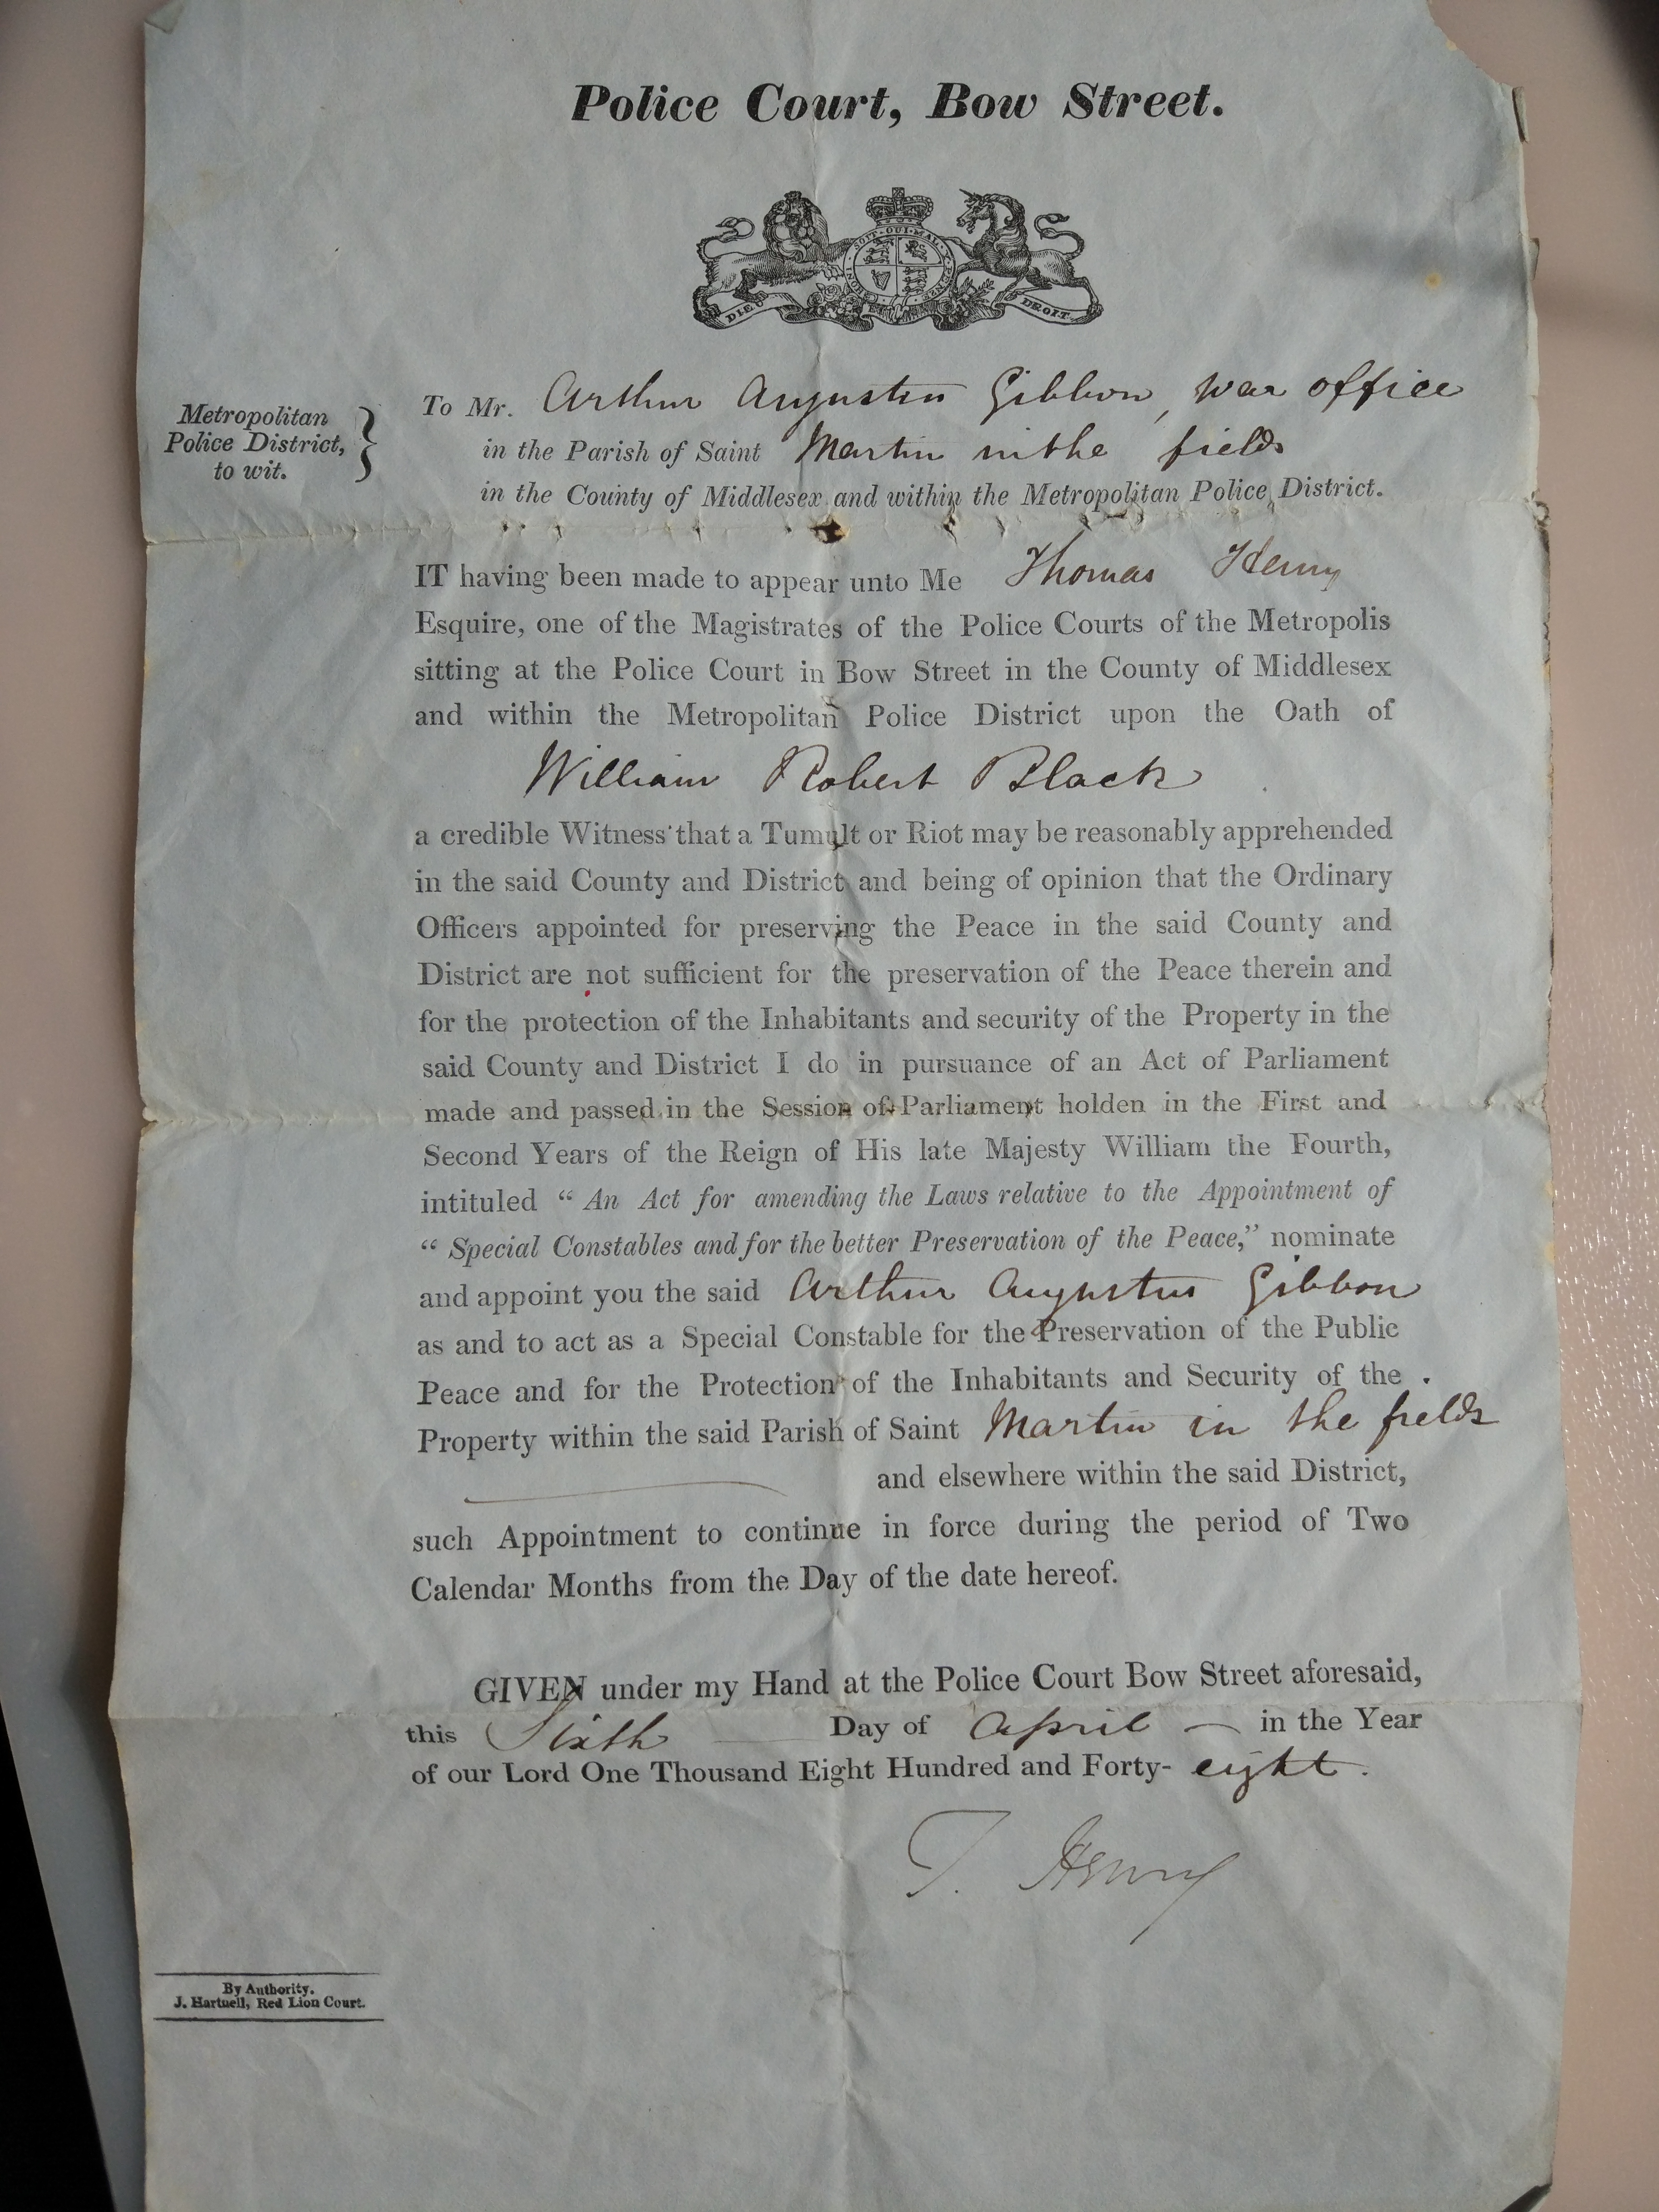 Police Court, Bow Street.
SOIT QUI MAL
DIEU ET DROIT
Metropolitan
Police District,
to wit.
To Mr. Arthur Augustin Gibbon, War office
in the Parish of Saint Martin in the fields
in the County of Middlesex and within the Metropolitan Police District.
IT having been made to appear unto Me Thomas Henry
Esquire, one of the Magistrates of the Police Courts of the Metropolis
sitting at the Police Court in Bow Street in the County of Middlesex
and within the Metropolitan Police District upon the Oath of
William Robert Black
a credible Witness that a Tumult or Riot may be reasonably apprehended
in the said County and District and being of opinion that the Ordinary
Officers appointed for preserving the Peace in the said County and
District are not sufficient for the preservation of the Peace therein and
for the protection of the Inhabitants and security of the Property in the
said County and District I do in pursuance of an Act of Parliament
made and passed in the Session of Parliament holden in the First and
Second Years of the Reign of His late Majesty William the Fourth,
intituled “ An Act for amending the Laws relative to the Appointment of
“ Special Constables and for the better Preservation of the Peace,” nominate
and appoint you the said Arthur Augustus Gibbon
as and to act as a Special Constable for the Preservation of the Public
Peace and for the Protection of the Inhabitants and Security of the
Property within the said Parish of Saint Martin in the fields
and elsewhere within the said District,
such Appointment to continue in force during the period of Two
Calendar Months from the Day of the date hereof.
GIVEN under my Hand at the Police Court Bow Street aforesaid,
this Sixth Day of April — in the Year
of our Lord One Thousand Eight Hundred and Forty- eight.
T. Henry
By Authority.
J. Hartnell, Red Lion Court.